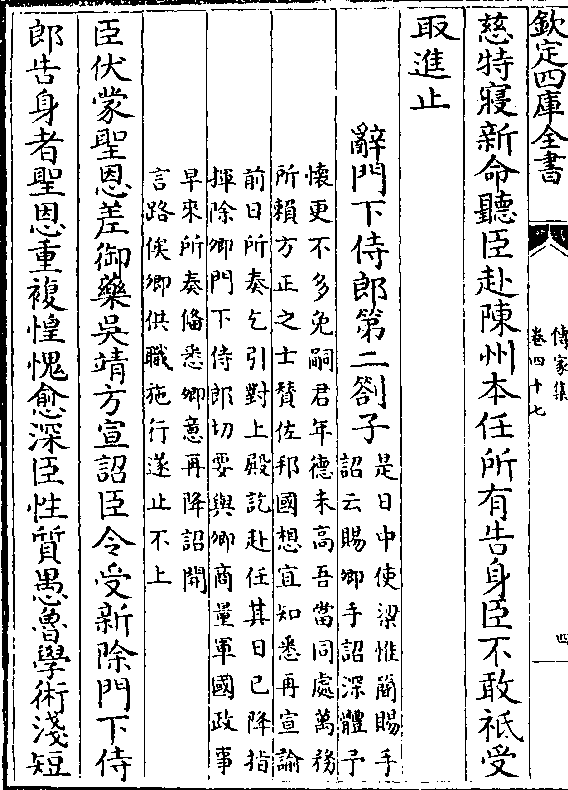 欽定四庫全書
傳家集
卷四十七
四
慈特寢新命聽臣赴陳州本任所有告身臣不敢祗受
取進止
辭門下侍郎第二劄子
是日中使梁惟簡賜手
詔云賜卿手詔深體予
懷更不多免嗣君年德未高吾當同處萬務
所賴方正之士贊佐邦國想宜知悉再宣諭
前日所奏乞引對上殿訖赴任其日已降指
揮除卿門下侍郎切要與卿商量軍國政事
早來所奏備悉卿意再降詔開
言路俟卿供職施行遂止不上
臣伏蒙聖恩差御藥吳靖方宣詔臣令受新除門下侍
郎告身者聖恩重複惶愧愈深臣性質愚魯學術淺短